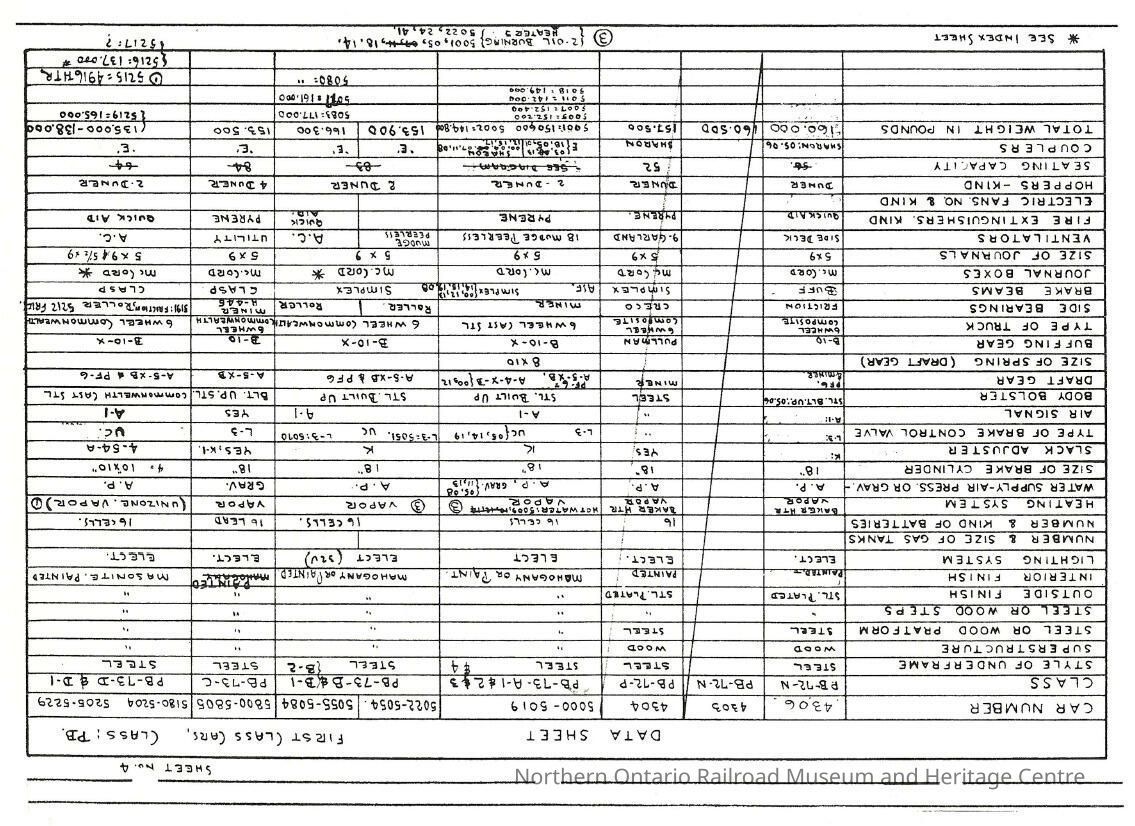 SHEET No. 4
DATA SHEET FIRST CLASS CARS, CLASS: PB.
CAR NUMBER 4306 4305 4304 5000-5019 5022-5054. 5055-5084 5800-5805 5180-5204 5205-5229
CLASS PB-72-N PB-72-N PB-72-P PB-73-A-1&2&3 & 4 PB-73-B&B-1 & B-2 PB-73-C PB-73-D & D-1
STYLE OF UNDERFRAME STEEL STEEL STEEL STEEL STEEL STEEL
SUPERSTRUCTURE WOOD WOOD " " " "
STEEL OR WOOD PRATFORM STEEL STEEL " " " "
STEEL OR WOOD STEPS " " " " "
OUTSIDE FINISH STL. PLATED STL. PLATED " " " "
INTERIOR FINISH PAINTED PAINTED MAHOGANY OR PAINT. MAHOGANY OR PAINTED MAHOGANY PAINTED MASONITE. PAINTED
LIGHTING SYSTEM ELECT. ELECT. ELECT ELECT (32V) ELECT. ELECT.
NUMBER & SIZE OF GAS TANKS
NUMBER & KIND OF BATTERIES 16 16 CELLS 16 CELLS. 16 LEAD 16 CELLS.
HEATING SYSTEM VAPOR BAKER HTR VAPOR BAKER HTR VAPOR ③ HOT WATER: 5009, VAPOR ③ VAPOR (UNIZONE. VAPOR) ①
WATER SUPPLY-AIR PRESS. OR GRAV.- A.P. A.P. A.P., GRAV. {05,08 11,13 A.P. GRAV. A.P.
SIZE OF BRAKE CYLINDER 18" 18" 18" 18" 18" 4= 10"x10"
SLACK ADJUSTER K: YES K K YES; K-1. 4-54-A
TYPE OF BRAKE CONTROL VALVE L-3: " L-3 UC{05,14,19 L-3:5051. UC L-3:5070 L-3 UC.
AIR SIGNAL A-1: " A-1 A-1 YES A-1
BODY BOLSTER STL. BLT.UP:05.06 STEEL STL. BUILT UP STL. BUILT UP BLT. UP. STL. COMMONWEALTH CAST STL
DRAFT GEAR PF6, & MINER MINER A-5-XB, PF-6, A-4-X-B{00,12 A-5-XB & PF6 A-5-XB A-5-XB & PF-6
SIZE OF SPRING (DRAFT GEAR) 8 x 10
BUFFING GEAR B-10 PULLMAN B-10-X B-10-X B-10 B-10-X
TYPE OF TRUCK 6 WHEEL COMPOSITE 6 WHEEL COMPOSITE 6 WHEEL CAST STL 6 WHEEL COMMONWEALTH 6 WHEEL COMMONWEALTH 6 WHEEL COMMONWEALTH
SIDE BEARINGS FRICTION CRECO MINER ROLLER. ROLLER MINER H-446 5191: FRICTION, ROLLER 5212 FRIC.
BRAKE BEAMS BUFF SIMPLEX SIMPLEX SIMPLEX CLASP CLASP
JOURNAL BOXES Mc.CORD Mc CORD Mc.CORD Mc.CORD * Mc CORD Mc CORD *
SIZE OF JOURNALS 5x9 5x9 5x9 5 x 9 5x9 5x9 & 5½x9
VENTILATORS SIDE DECK 9-GARLAND 18 MUDGE PEERLESS MUDGE PEERLESS A.C. UTILITY A.C.
FIRE EXTINGUISHERS. KIND QUICK AID PYRENE. PYRENE QUICK AID. PYRENE QUICK AID
ELECTRIC FANS. NO. & KIND
HOPPERS -KIND DUNER DUNER 2-DUNER 2 DUNER 4 DUNER 2-DUNER
SEATING CAPACITY 52 SEE DIAGRAM 83 84 64
COUPLERS SHARON:05.06 SHARON 'E' SHARON 'E.' 'E. 'E.' 'E.
TOTAL WEIGHT IN POUNDS 160.000 160.500 157.500 5001:150.600 5002:144.800 153.900 166.300 153.500 (135.000-138.000
5005:152.200
5007:152.400 5083=177.000 {5219=165.000
5011=142.000 5071=161.000
5018=149.000
5080: " ① 5215=4916 HTR
{5216:137.000 *
* SEE INDEX SHEET ③ {2-OIL BURNING HEATERS} 5001, 05, 18, 14, 5022, 24, 41. {5217=?
Northern Ontario Railroad Museum and Heritage Centre